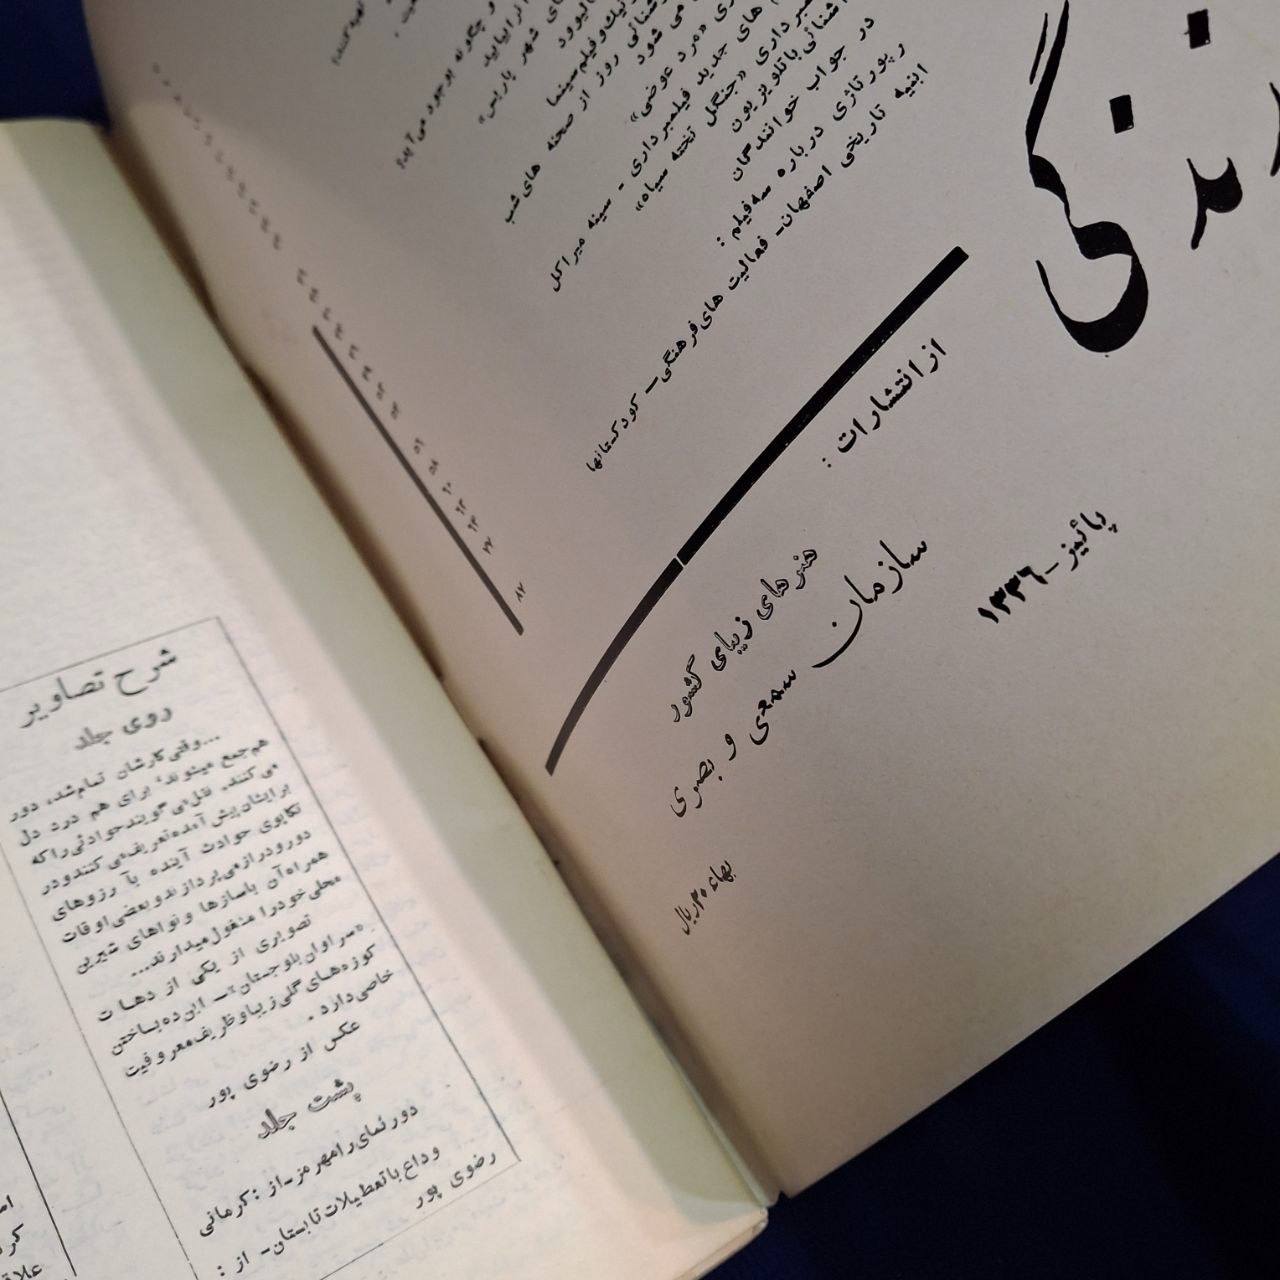 چگونه بوجود می‌آید؟
شهر پاریس»
شنائی روز از صحنه های شب
می شود
«مرد عوضی»
های جدید فیلمبرداری - سینه میراکل
برداری «جنگل تخته سیاه»
آشنائی با تلویزیون
در جواب خوانندگان
رپورتاژی درباره سه فیلم :
ابنیه تاریخی اصفهان - فعالیت های فرهنگی - کودکستانها
۵۶
۵۸
۶۰
۸۲
ندگی
از انتشارات :
هنرهای زیبای کشور
سازمان سمعی و بصری
پائیز - ۱۳۳۶
بهاء ۳۰ ریال
شرح تصاویر
روی جلد
...وقتی کارشان تمام شد، دور
هم جمع میشوند، برای هم درد دل
می کنند. نقل می گویند حوادثی را که
برایشان پیش آمده تعریف می کنند و در
تکاپوی حوادث آینده با آرزوهای
دور و دراز می پردازند و بعضی اوقات
همراه آن باسازها و نواهای شیرین
محلی خود را مشغول میدارند...
تصویری از یکی از دهات
«سراوان بلوچستان» - این ده بساختن
کوزه‌های گلی زیبا و ظریف معروفیت
خاصی دارد .
عکس از رضوی پور
پشت جلد
دورنمای رامهرمز - از : کرمانی
وداع با تعطیلات تابستان - از :
رضوی پور